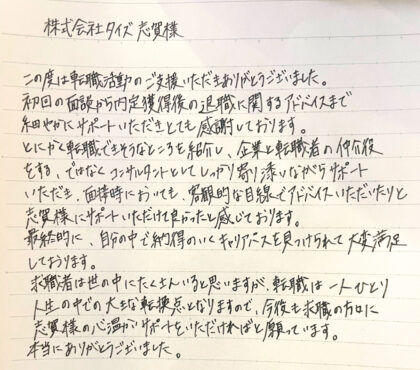 株式会社タイズ 志賀様
この度は転職活動のご支援いただきありがとうございました。
初回の面談から内定獲得後の退職に関するアドバイスまで
細やかにサポートいただきとても感謝しております。
とにかく転職できそうなところを紹介し、企業と転職者の仲介役
をする、ではなくコンサルタントとしてしっかり寄り添いながらサポート
いただき、面接時においても、客観的な目線でアドバイスいただいたりと
志賀様にサポートいただけて良かったと感じております。
最終的に、自分の中で納得のいくキャリアパスを見つけられて大変満足
しております。
求職者は世の中にたくさんいると思いますが、転職は一人ひとり
人生の中での大きな転換点となりますので、今後も求職の方々に
志賀様の心温かいサポートをいただければと願っています。
本当にありがとうございました。